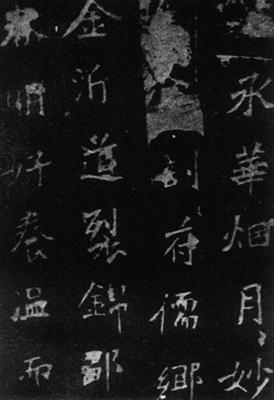 承華烟月〻妙
剖符儒鄉
金沂道裂錦
明好養温而